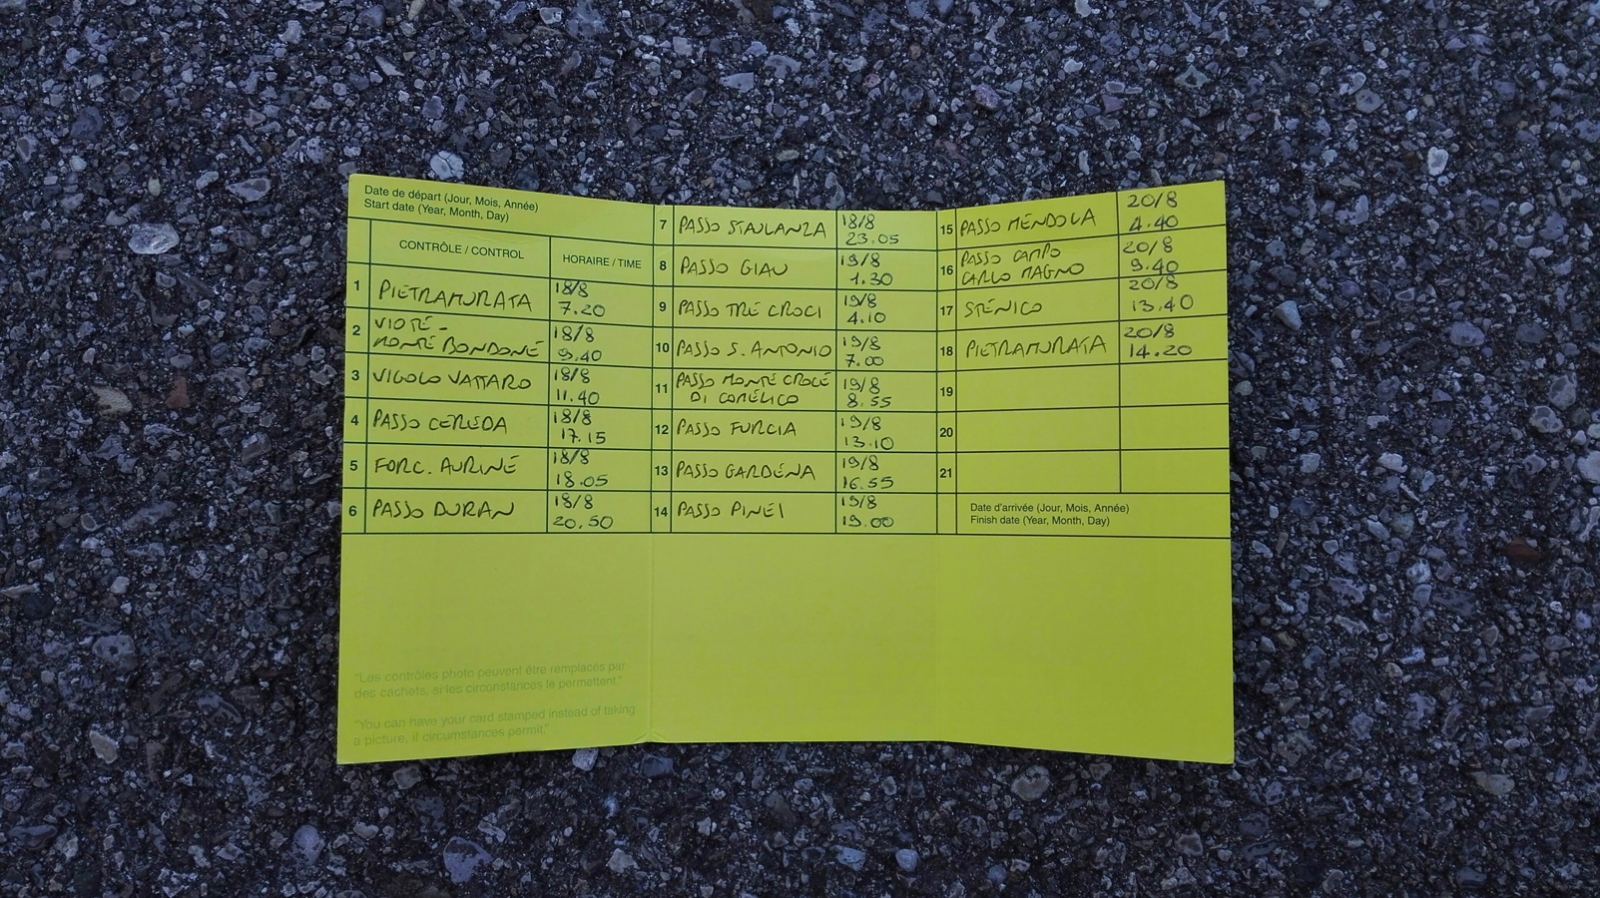 Date de départ (Jour, Mois, Année)
Start date (Year, Month, Day)
CONTRÔLE / CONTROL
HORAIRE / TIME
1 PIETRAMURATA 18/8
7.20
2 VIOTE - 18/8
MONTE BONDONE 9.40
3 VIGOLO VATTARO 18/8
11.40
4 PASSO CEREDA 18/8
17.15
5 FORC. AURINE 18/8
18.05
6 PASSO DURAN 18/8
20.50
7 PASSO STAULANZA 18/8
23.05
8 PASSO GIAU 19/8
1.30
9 PASSO TRE CROCI 19/8
4.10
10 PASSO S. ANTONIO 19/8
7.00
11 PASSO MONTE CROCE 19/8
DI COMELICO 8.55
12 PASSO FURCIA 19/8
13.10
13 PASSO GARDENA 19/8
16.55
14 PASSO PINEI 19/8
19.00
15 PASSO MENDOLA 20/8
4.40
16 PASSO CAMPO 20/8
CARLO MAGNO 9.40
17 STENICO 20/8
13.40
18 PIETRAMURATA 20/8
14.20
19
20
21
Date d'arrivée (Jour, Mois, Année)
Finish date (Year, Month, Day)
"Les contrôles photo peuvent être remplacés par
des cachets, si les circonstances le permettent."
"You can have your card stamped instead of taking
a picture, if circumstances permit."